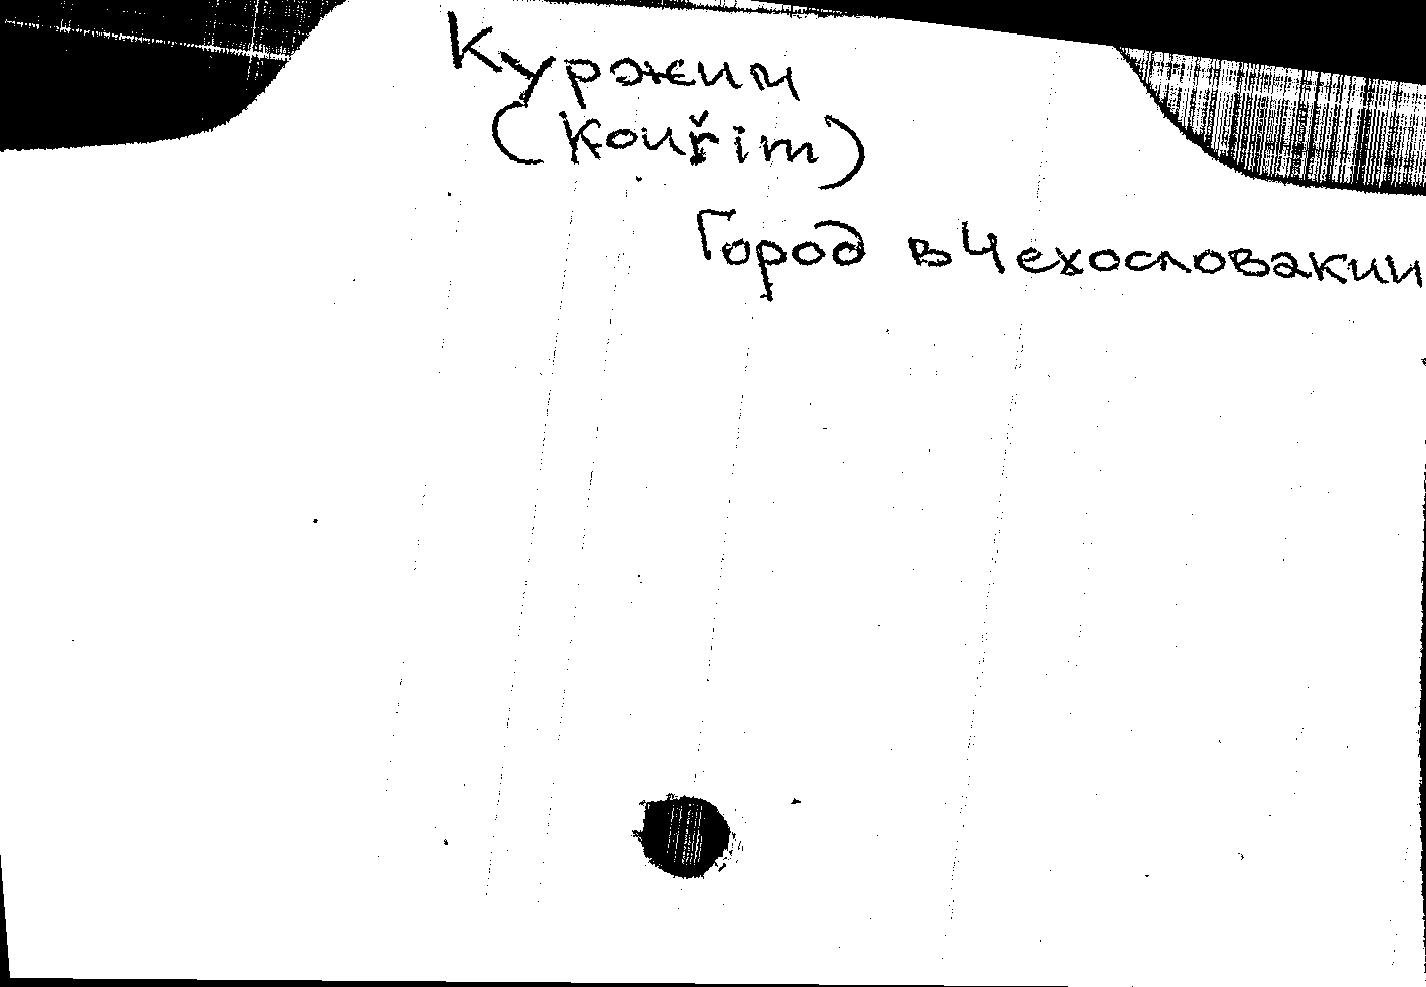 Куржим
(Kouřim)
Город в Чехословакии